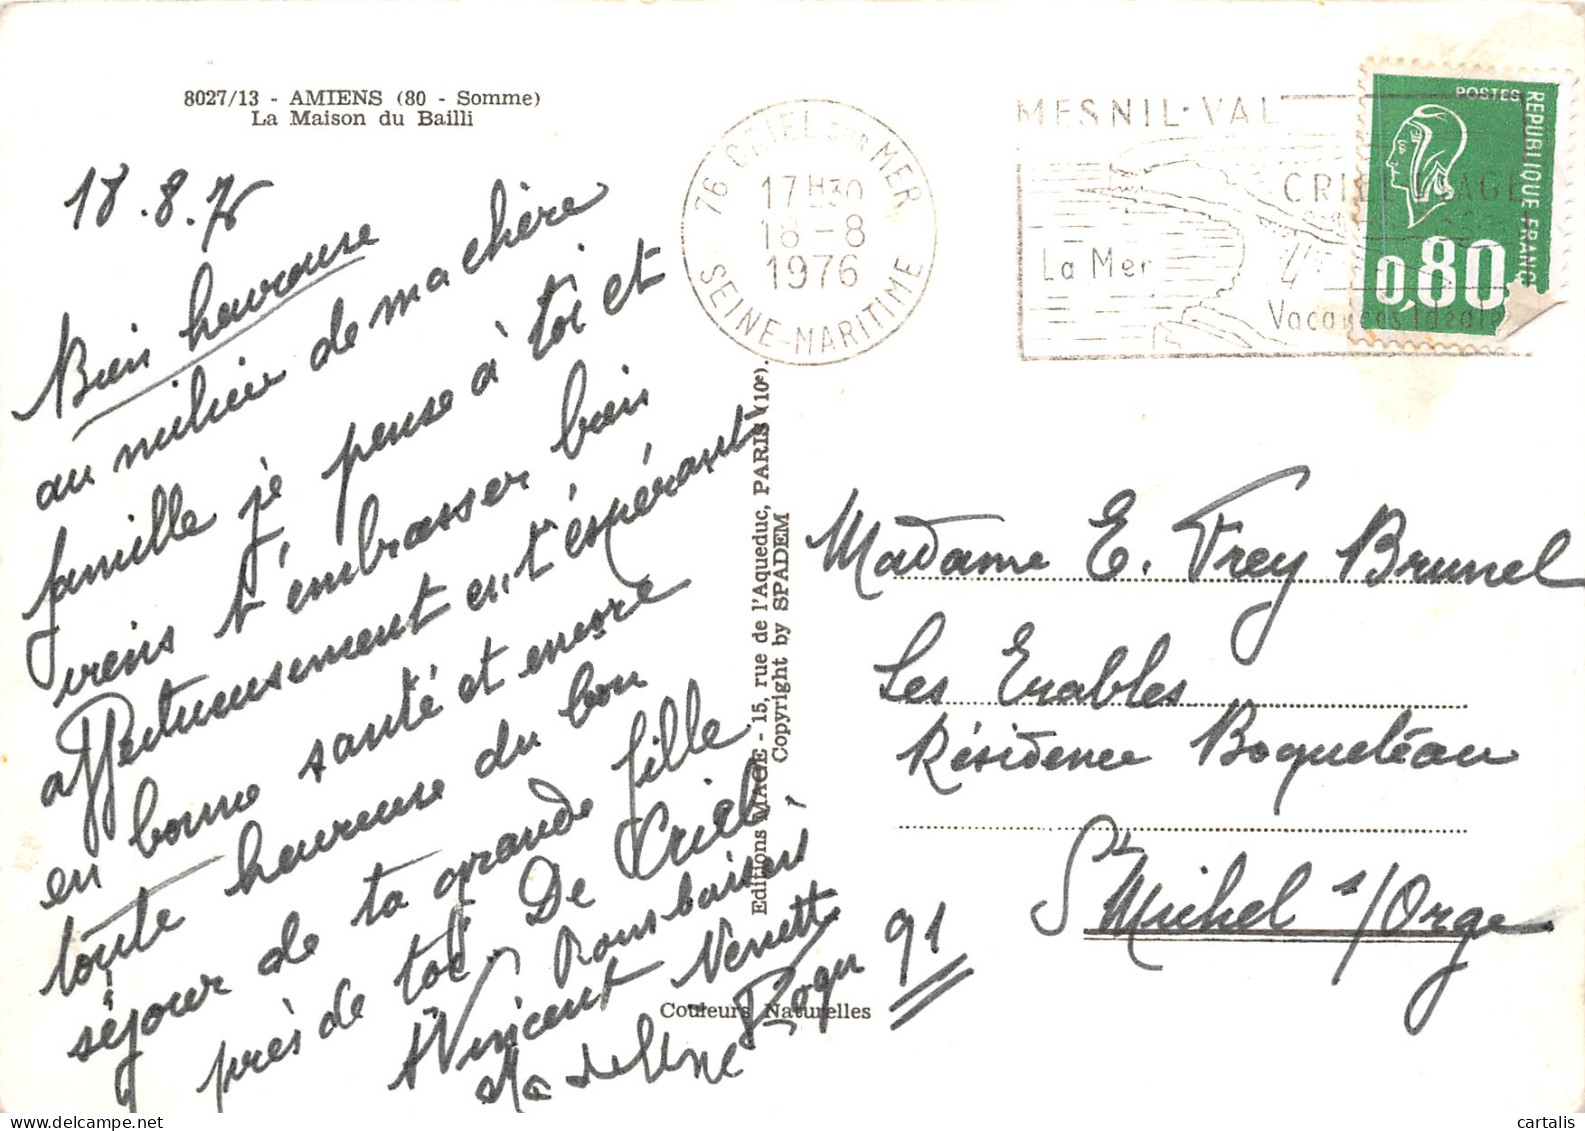 8027/13 - AMIENS (80 - Somme)
La Maison du Bailli
18.8.76
Bien heureuse
au milieu de ma chère
famille je pense à toi et
viens t'embrasser bien
affectueusement en t'espérant
en bonne santé et encore
toute heureuse du bon
séjour de ta grande fille
près de toi. De Criel,
Bons baisers
Vincent Nenette
Madeleine Roger
76 CRIEL sur MER
17H30
18-8
1976
SEINE-MARITIME
MESNIL-VAL
CRIEL PLAGE
La Mer
Vacances Idéales
POSTES
REPUBLIQUE FRANC
0,80
Editions MAGE - 15, rue de l'Aqueduc, PARIS (10e).
Copyright by SPADEM
Couleurs Naturelles
Madame E. Frey Brunel
Les Erables
Résidence Boqueteau
St Michel s/Orge
91
cartalis